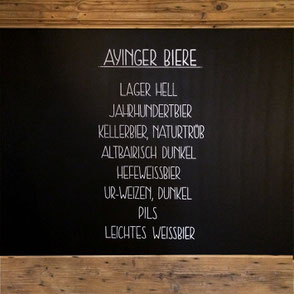 AYINGER BIERE
LAGER HELL
JAHRHUNDERTBIER
KELLERBIER, NATURTRÜB
ALTBAIRISCH DUNKEL
HEFEWEISSBIER
UR-WEIZEN, DUNKEL
PILS
LEICHTES WEISSBIER